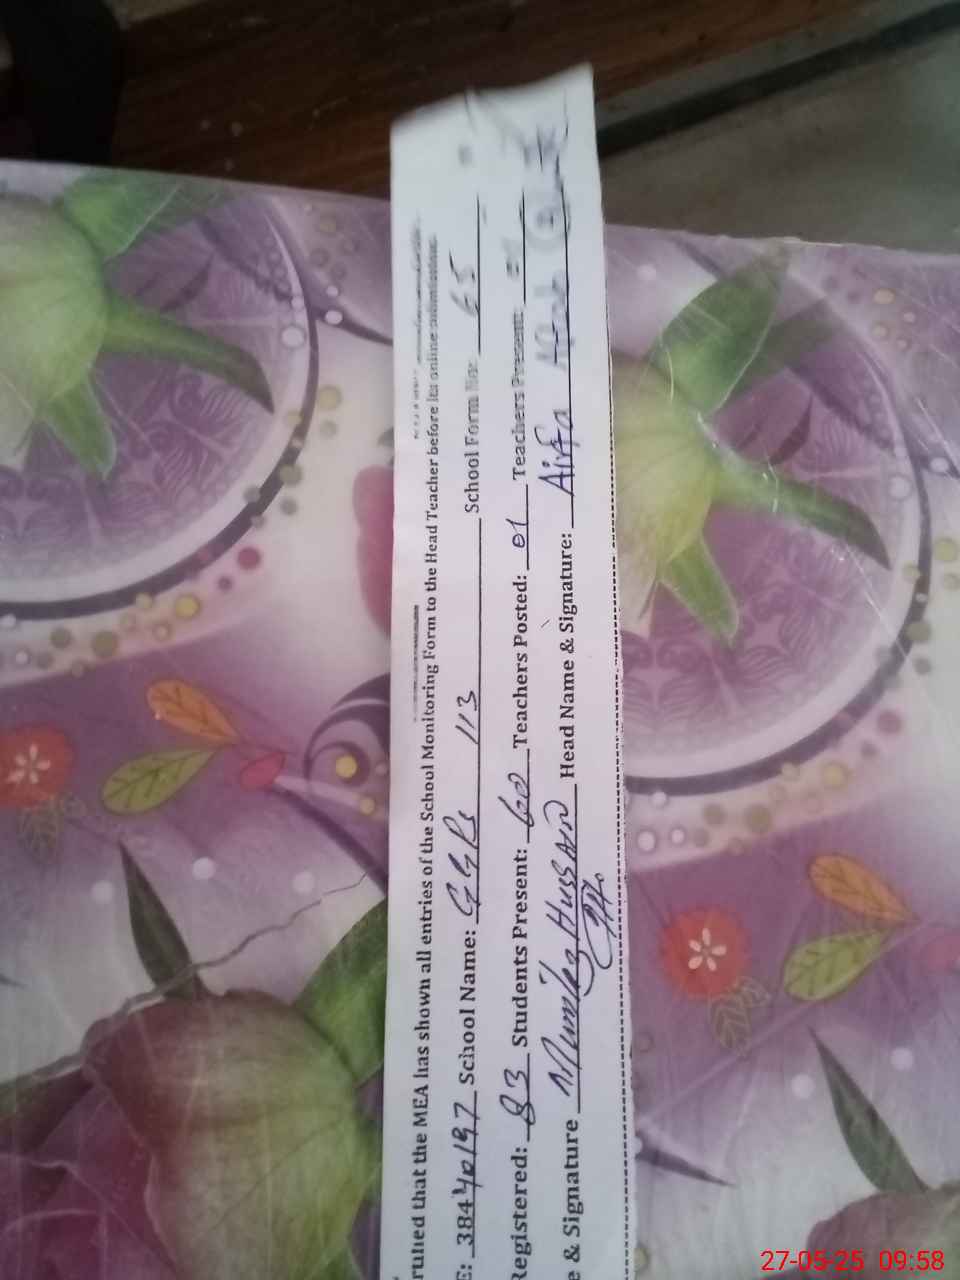 that the MEA has shown all entries of the School Monitoring Form to the Head Teacher before its online submission.
E: 38440197 School Name: GGPS 113 School Form No: 65
Registered: 83 Students Present: 60 Teachers Posted: 01 Teachers Present:
e & Signature Mumtaz Hussain Head Name & Signature: Aifa
27-05-25 09:58